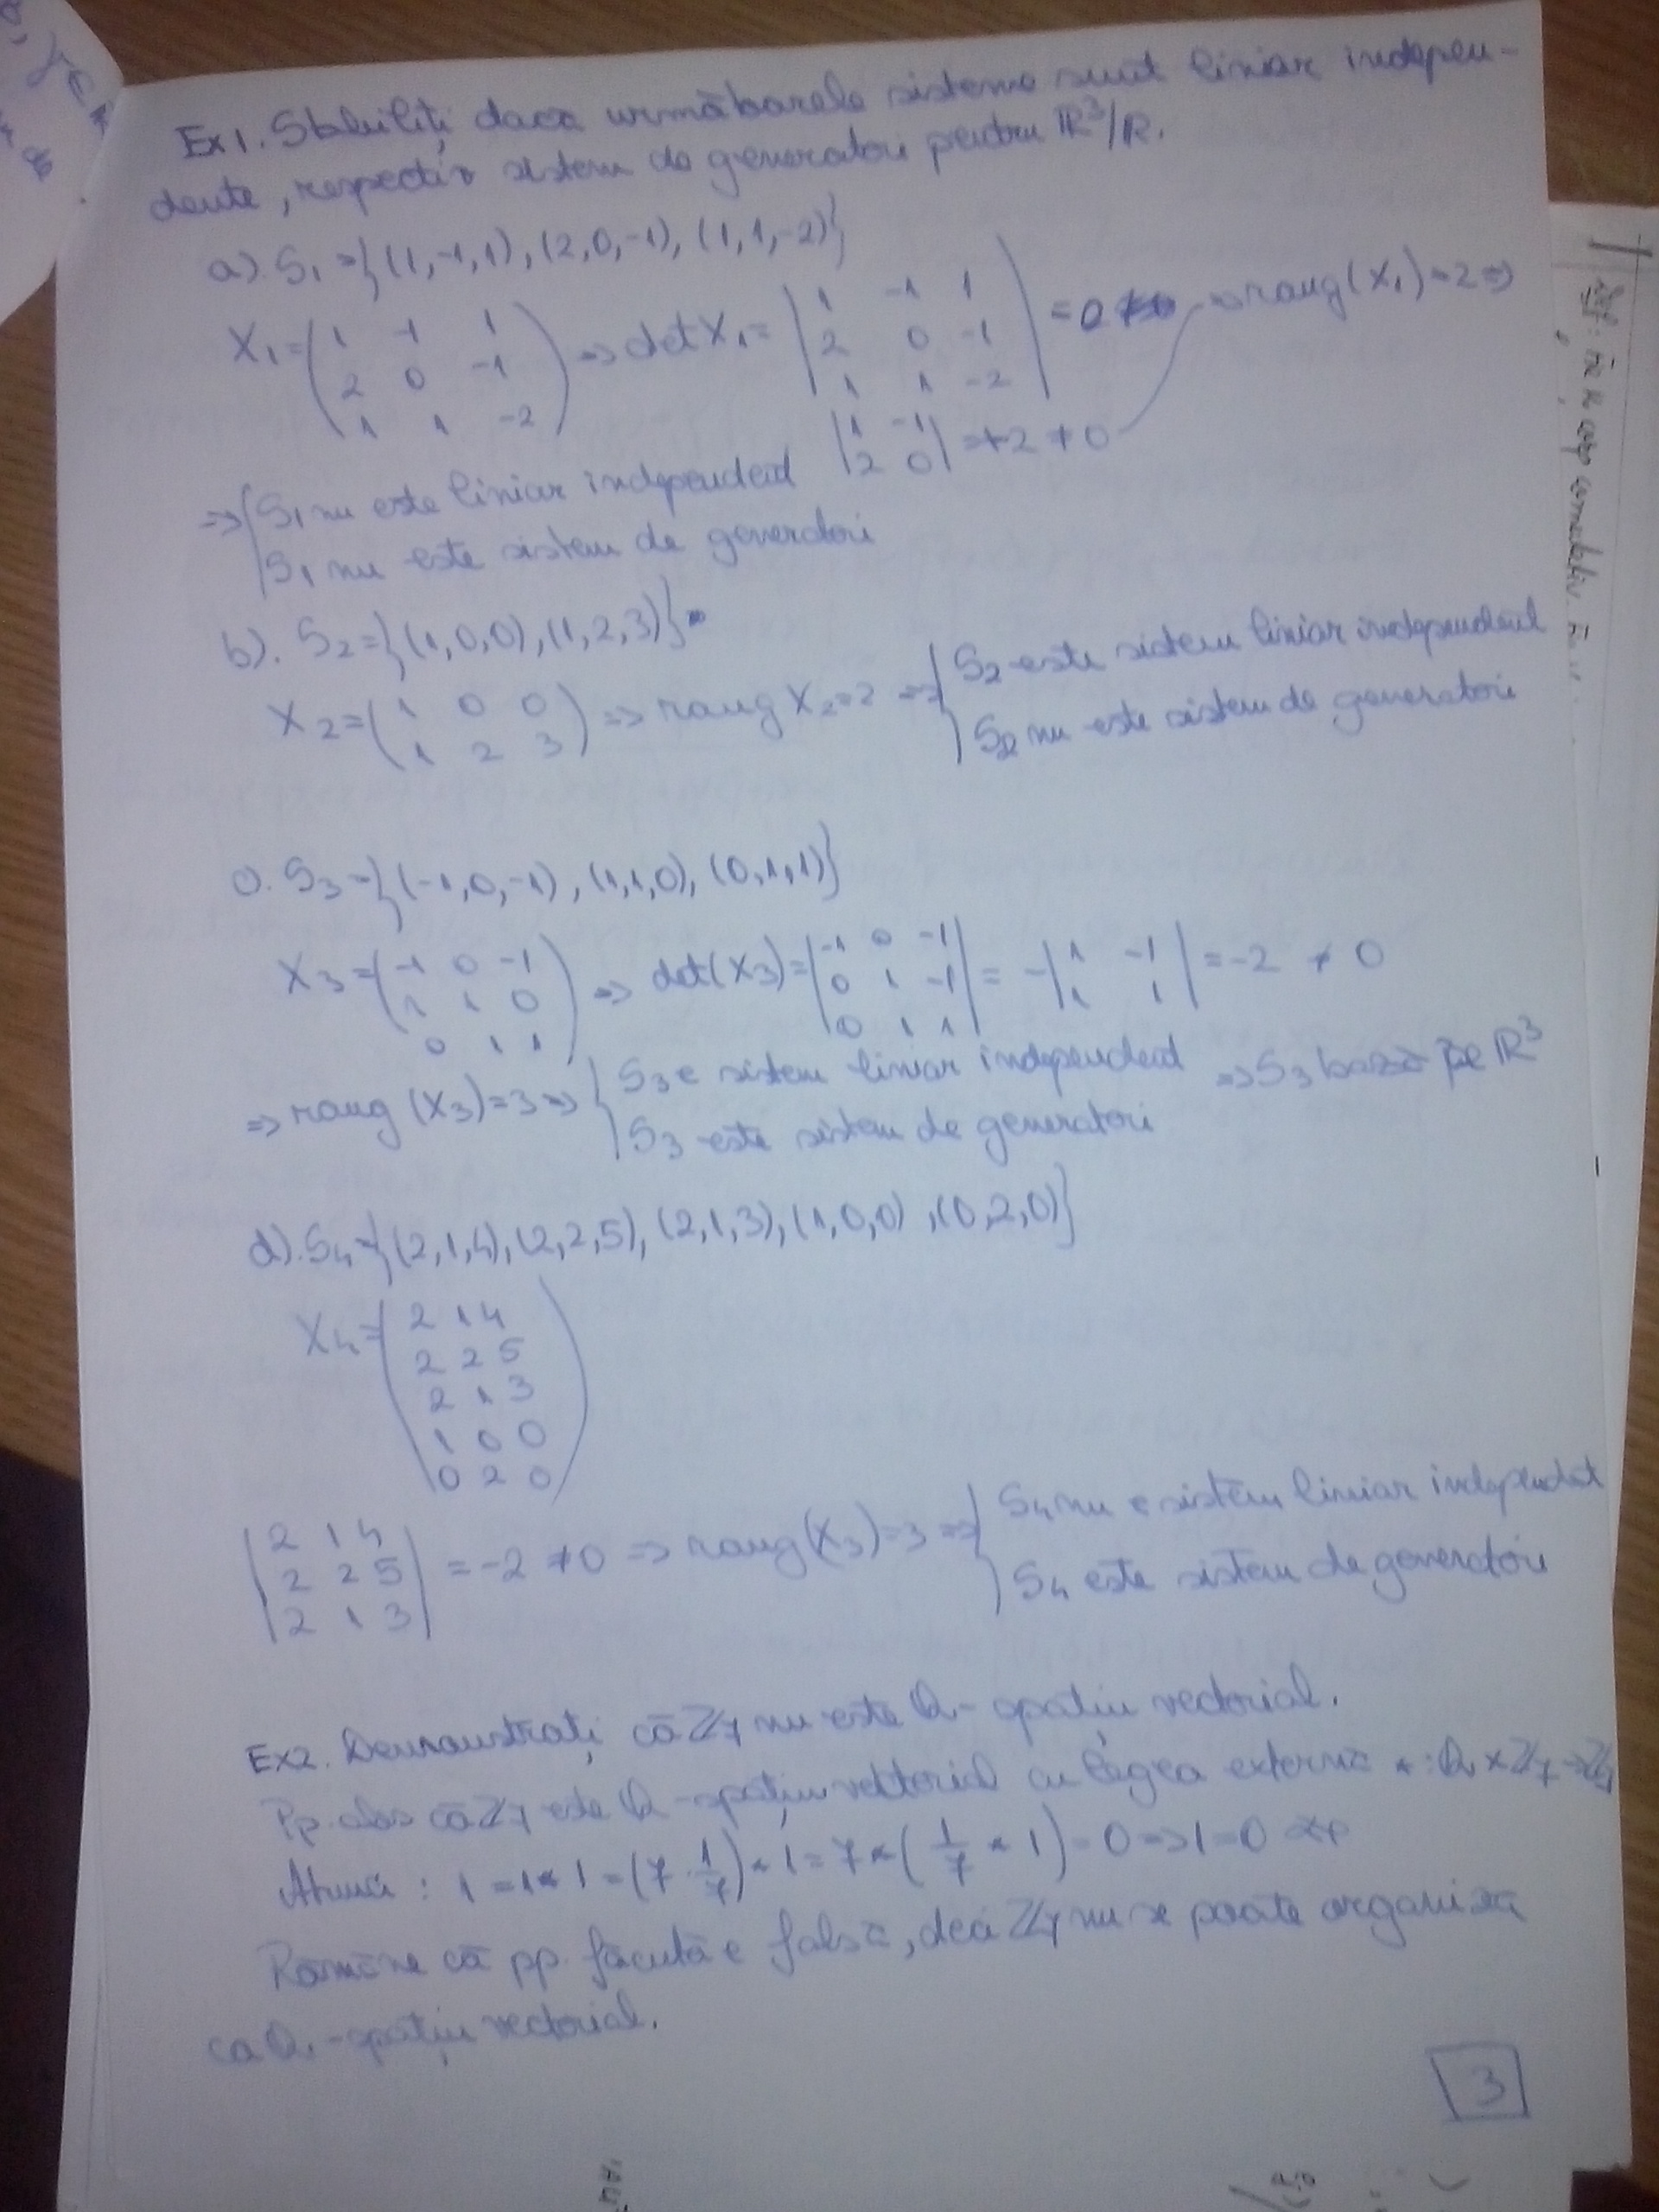 Ex1. Stabiliți daca următoarele sisteme sunt liniar indepen-
dente, respectiv sistem de generatori pentru ℝ³/ℝ.
a). S₁={(1,-1,1),(2,0,-1),(1,1,-2)}
X₁=(1 -1 1 ⇒ det X₁= |1 -1 1| = 0 ⇒ rang(X₁)=2 ⇒
2 0 -1 |2 0 -1|
1 1 -2) |1 1 -2|
|1 -1| = +2 ≠ 0
|2 0|
⇒ {S₁ nu este liniar independent
S₁ nu este sistem de generatori
b). S₂={(1,0,0),(1,2,3)}
X₂=(1 0 0 ⇒ rang X₂=2 ⇒ {S₂ este sistem liniar independent
1 2 3) S₂ nu este sistem de generatori
c). S₃={(-1,0,-1),(1,1,0),(0,1,1)}
X₃=(-1 0 -1 ⇒ det(X₃)= |-1 0 -1| = -|1 -1| = -2 ≠ 0
1 1 0 |0 1 -1| |1 1|
0 1 1) |0 1 1|
⇒ rang(X₃)=3 ⇒ {S₃ e sistem liniar independent ⇒ S₃ bază pe ℝ³
S₃ este sistem de generatori
d). S₄={(2,1,4),(2,2,5),(2,1,3),(1,0,0),(0,2,0)}
X₄=(2 1 4
2 2 5
2 1 3
1 0 0
0 2 0)
|2 1 4| = -2 ≠ 0 ⇒ rang(X₃)=3 ⇒ {S₄ nu e sistem liniar independent
|2 2 5| S₄ este sistem de generatori
|2 1 3|
Ex2. Demonstrați că ℤ₇ nu este ℚ-spațiu vectorial.
Pp. abs că ℤ₇ este ℚ-spațiu vectorial cu legea externă *: ℚ×ℤ₇→ℤ₇
Atunci: 1=1*1=(7·1/7)*1=7*(1/7*1)=0⇒1=0
Rămâne că pp. făcută e falsă, deci ℤ₇ nu se poate organiza
ca ℚ-spațiu vectorial.
3